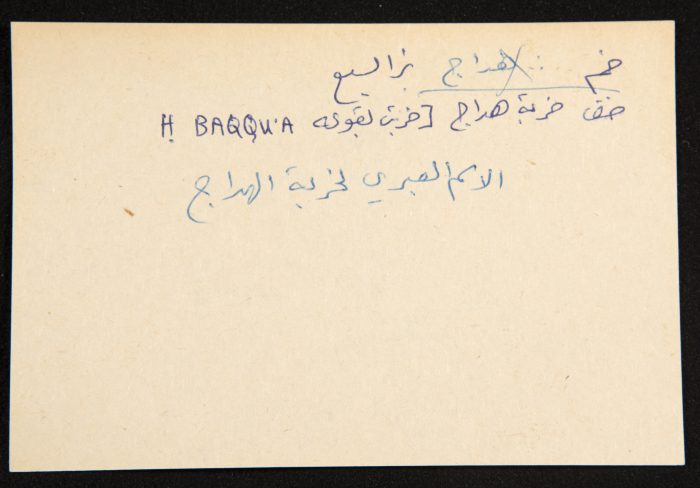 خم .. هداج بئر السبع
خف خربة هداج [خربت بقوعه H BAQQU'A
الاسم العبري لخربة الهداج